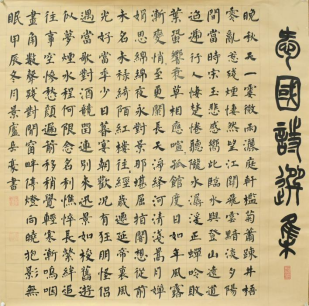 愛國詩選集
晚秋天一霎微雨灑庭軒檻菊蕭疎井梧
零亂惹殘煙悽然望江關飛雲黯淡夕陽
間當時宋玉悲感向此臨水與登山遠道
迢遞行人悽楚倦聽隴水潺湲正蟬吟敗
葉蛩響衰草相應喧喧孤館度日如年風露
漸變悄悄至更闌長天淨絳河清淺皓月嬋
娟思綿綿夜永對景那堪屈指暗想從前
未名未祿綺陌紅樓往往經歲遷延帝里風
光好當年少日暮宴朝歡況有狂朋怪侶
遇當歌對酒競留連別來迅景如梭舊遊
似夢煙水程何限念名利憔悴長縈絆追
往事空慘愁顏漏箭移稍覺輕寒漸嗚咽
畫角數聲殘對閒窗畔停燈向曉抱影無
眠甲辰冬月景廬岳豪書